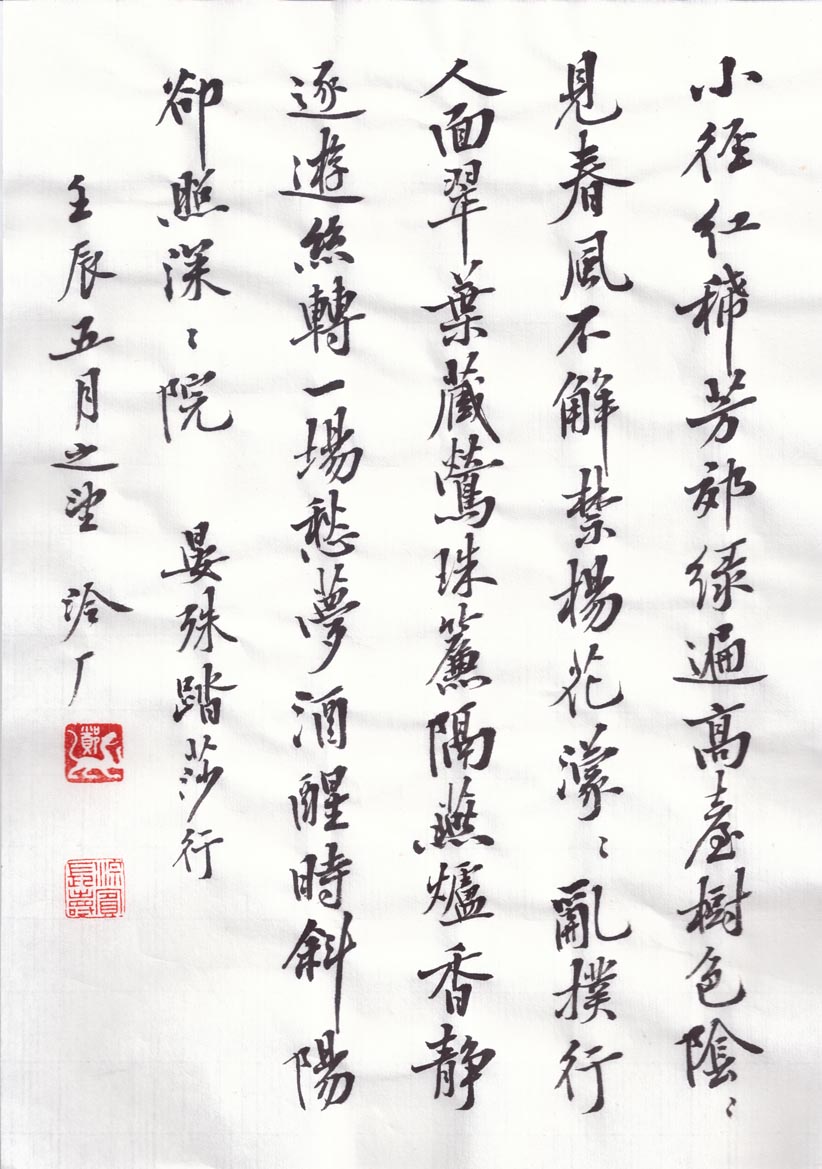 小徑紅稀芳郊綠遍高臺樹色陰〻
見春風不解禁楊花濛〻亂撲行
人面翠葉藏鶯珠簾隔燕爐香靜
逐遊絲轉一場愁夢酒醒時斜陽
卻照深〻院 晏殊踏莎行
壬辰五月之望 冷厂